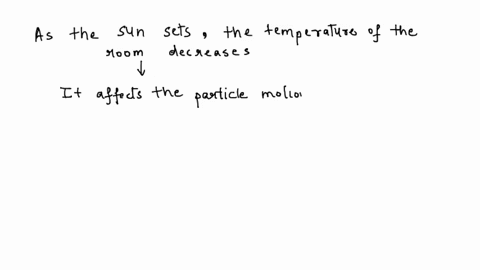 As the sun sets, the temperature of the
room decreases
↓
It affects the particle motio